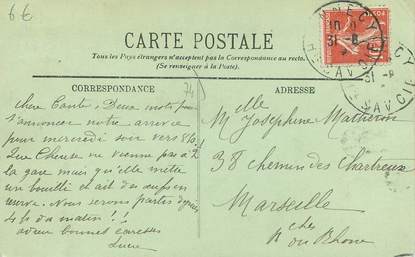 6€
CARTE POSTALE
Tous les Pays étrangers n'acceptent pas la Correspondance au recto.
(Se renseigner à la Poste).
CORRESPONDANCE
ADRESSE
ANNECY
31-8
Hte SAVOIE
chère Tante. Deux mots pour
t'annoncer notre arrivée
pour mercredi soir vers 8h
Que ne vienne pas à
la gare mais qu'elle mette
un bouilli et ait des œufs en
réserve. Nous serons partis depuis
4h du matin!!
bonnes caresses
Lucie
Melle Josephine Matheron
38 chemin des Chartreux
Marseille
Bches du Rhône